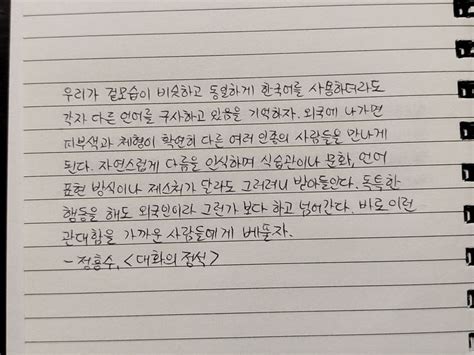 우리가 겉모습이 비슷하고 동일하게 한국어를 사용하더라도
각자 다른 언어를 구사하고 있음을 기억하자. 외국에 나가면
피부색과 체형이 확연히 다른 여러 인종의 사람들을 만나게
된다. 자연스럽게 다름을 인식하며 식습관이나 문화, 언어
표현 방식이나 제스처가 달라도 그러려니 받아들인다. 독특한
행동을 해도 외국인이라 그런가 보다 하고 넘어간다. 바로 이런
관대함을 가까운 사람들에게 베풀자.
- 정흥수, <대화의 정석>